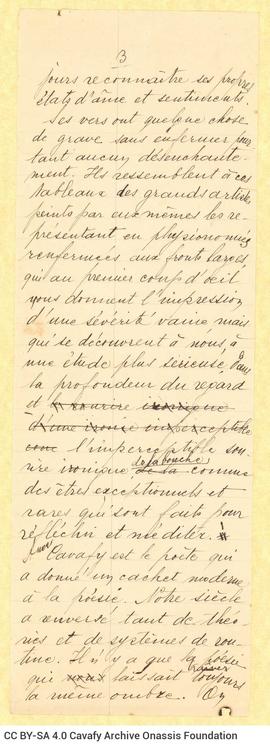 3
jours reconnaître ses propres
états d'âme et sentiments.
Ses vers ont quelque chose
de grave sans enfermer pour
tant aucun désenchante-
ment. Ils ressemblent à ces
tableaux des grands artistes
peints par eux mêmes les re-
présentant, en physionomies
renfermées aux fronts larges
qui au premier coup d'oeil
vous donnent l'impression
d'une sévérité vaine mais
qui se découvrent à nous à
une étude plus serieuse, dans
la profondeur du regard
et le sourire ironique
d'une ironie imperceptible
l'imperceptible sou
rire ironique de la bouche comme
des êtres exceptionnels et
rares qui sont faits pour
réfléchir et méditer.
Cavafy est le poète qui
a donné un cachet moderne
à la poésie. Notre siècle
a renversé tant de théo-
ries et de systèmes de rou-
tine. Il n'y a que la poésie
qui nous laissait trainer toujours
la même ombre. On
CC BY-SA 4.0 Cavafy Archive Onassis Foundation